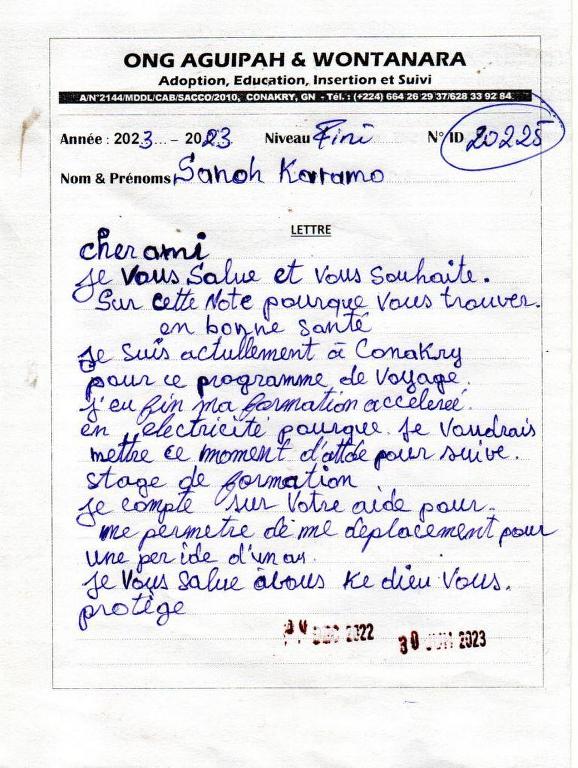 ONG AGUIPAH & WONTANARA
Adoption, Education, Insertion et Suivi
A/N°2144/MDDL/CAB/SACCO/2010, CONAKRY, GN - Tél. : (+224) 664 26 29 37/628 33 92 84
Année : 2023 - 2023 Niveau Fini N° ID 20225
Nom & Prénoms Sanoh Karamo
LETTRE
cher ami
je vous salue et vous souhaite.
Sur cette Note pourque vous trouver.
en bonne santé
je suis actullement à Conakry
pour ce programme de voyage.
j'eu fin ma formation accelereé.
en electricité pourque je voudrais
mettre ce moment d'attde pour suive.
stage de formation
je compte sur votre aide pour.
me permetre de me deplacement pour
une per ide d'un an.
je vous salue àbous ke dieu vous.
protège
DEC 2022 30 JUN 2023